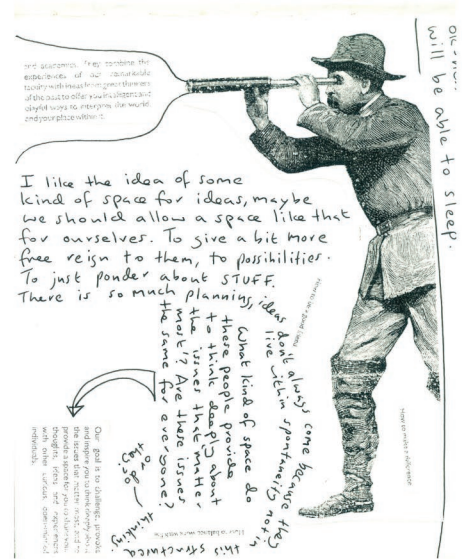 and academics. They combine the
experiences of our remarkable
faculty with ideas from great thinkers
of the past to offer you intelligent and
playful ways to interpret the world,
and your place within it.
will be able to sleep.
I like the idea of some
kind of space for ideas, maybe
we should allow a space like that
for ourselves. To give a bit more
free reign to them, to possibilities.
To just ponder about STUFF.
There is so much planning, ideas don't always come because they
live within spontaneity not in
this structured
thinking
or do
they?
What kind of space do
these people provide
to think deeply about
the issues that matter
most? Are these issues
the same for everyone?
Our goal is to challenge, provoke
and inspire you to think deeply about
the issues that matter most, and to
provide a space for you to share
thoughts, ideas and experiences
with other curious
individuals.
How to make a difference